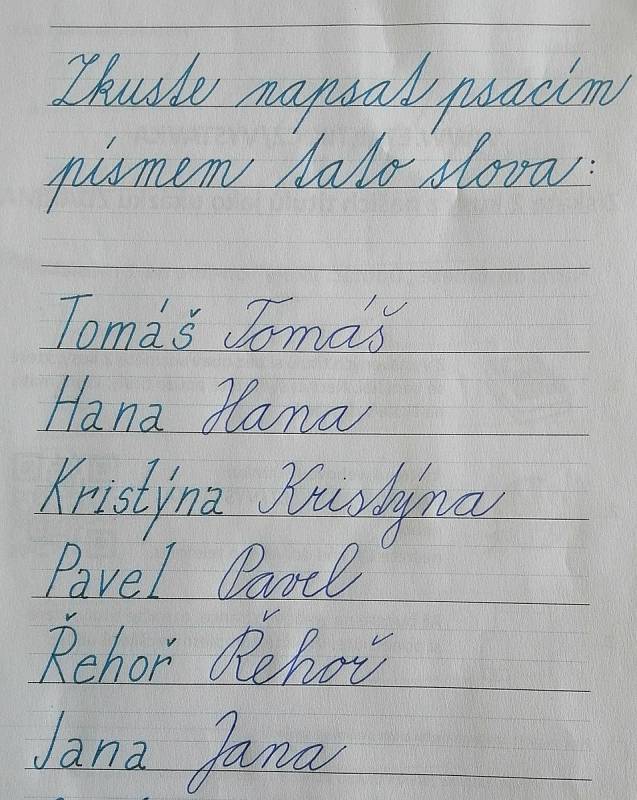 Zkuste napsat psacím
písmem tato slova:
Tomáš Tomáš
Hana Hana
Kristýna Kristýna
Pavel Pavel
Řehoř Řehoř
Jana Jana